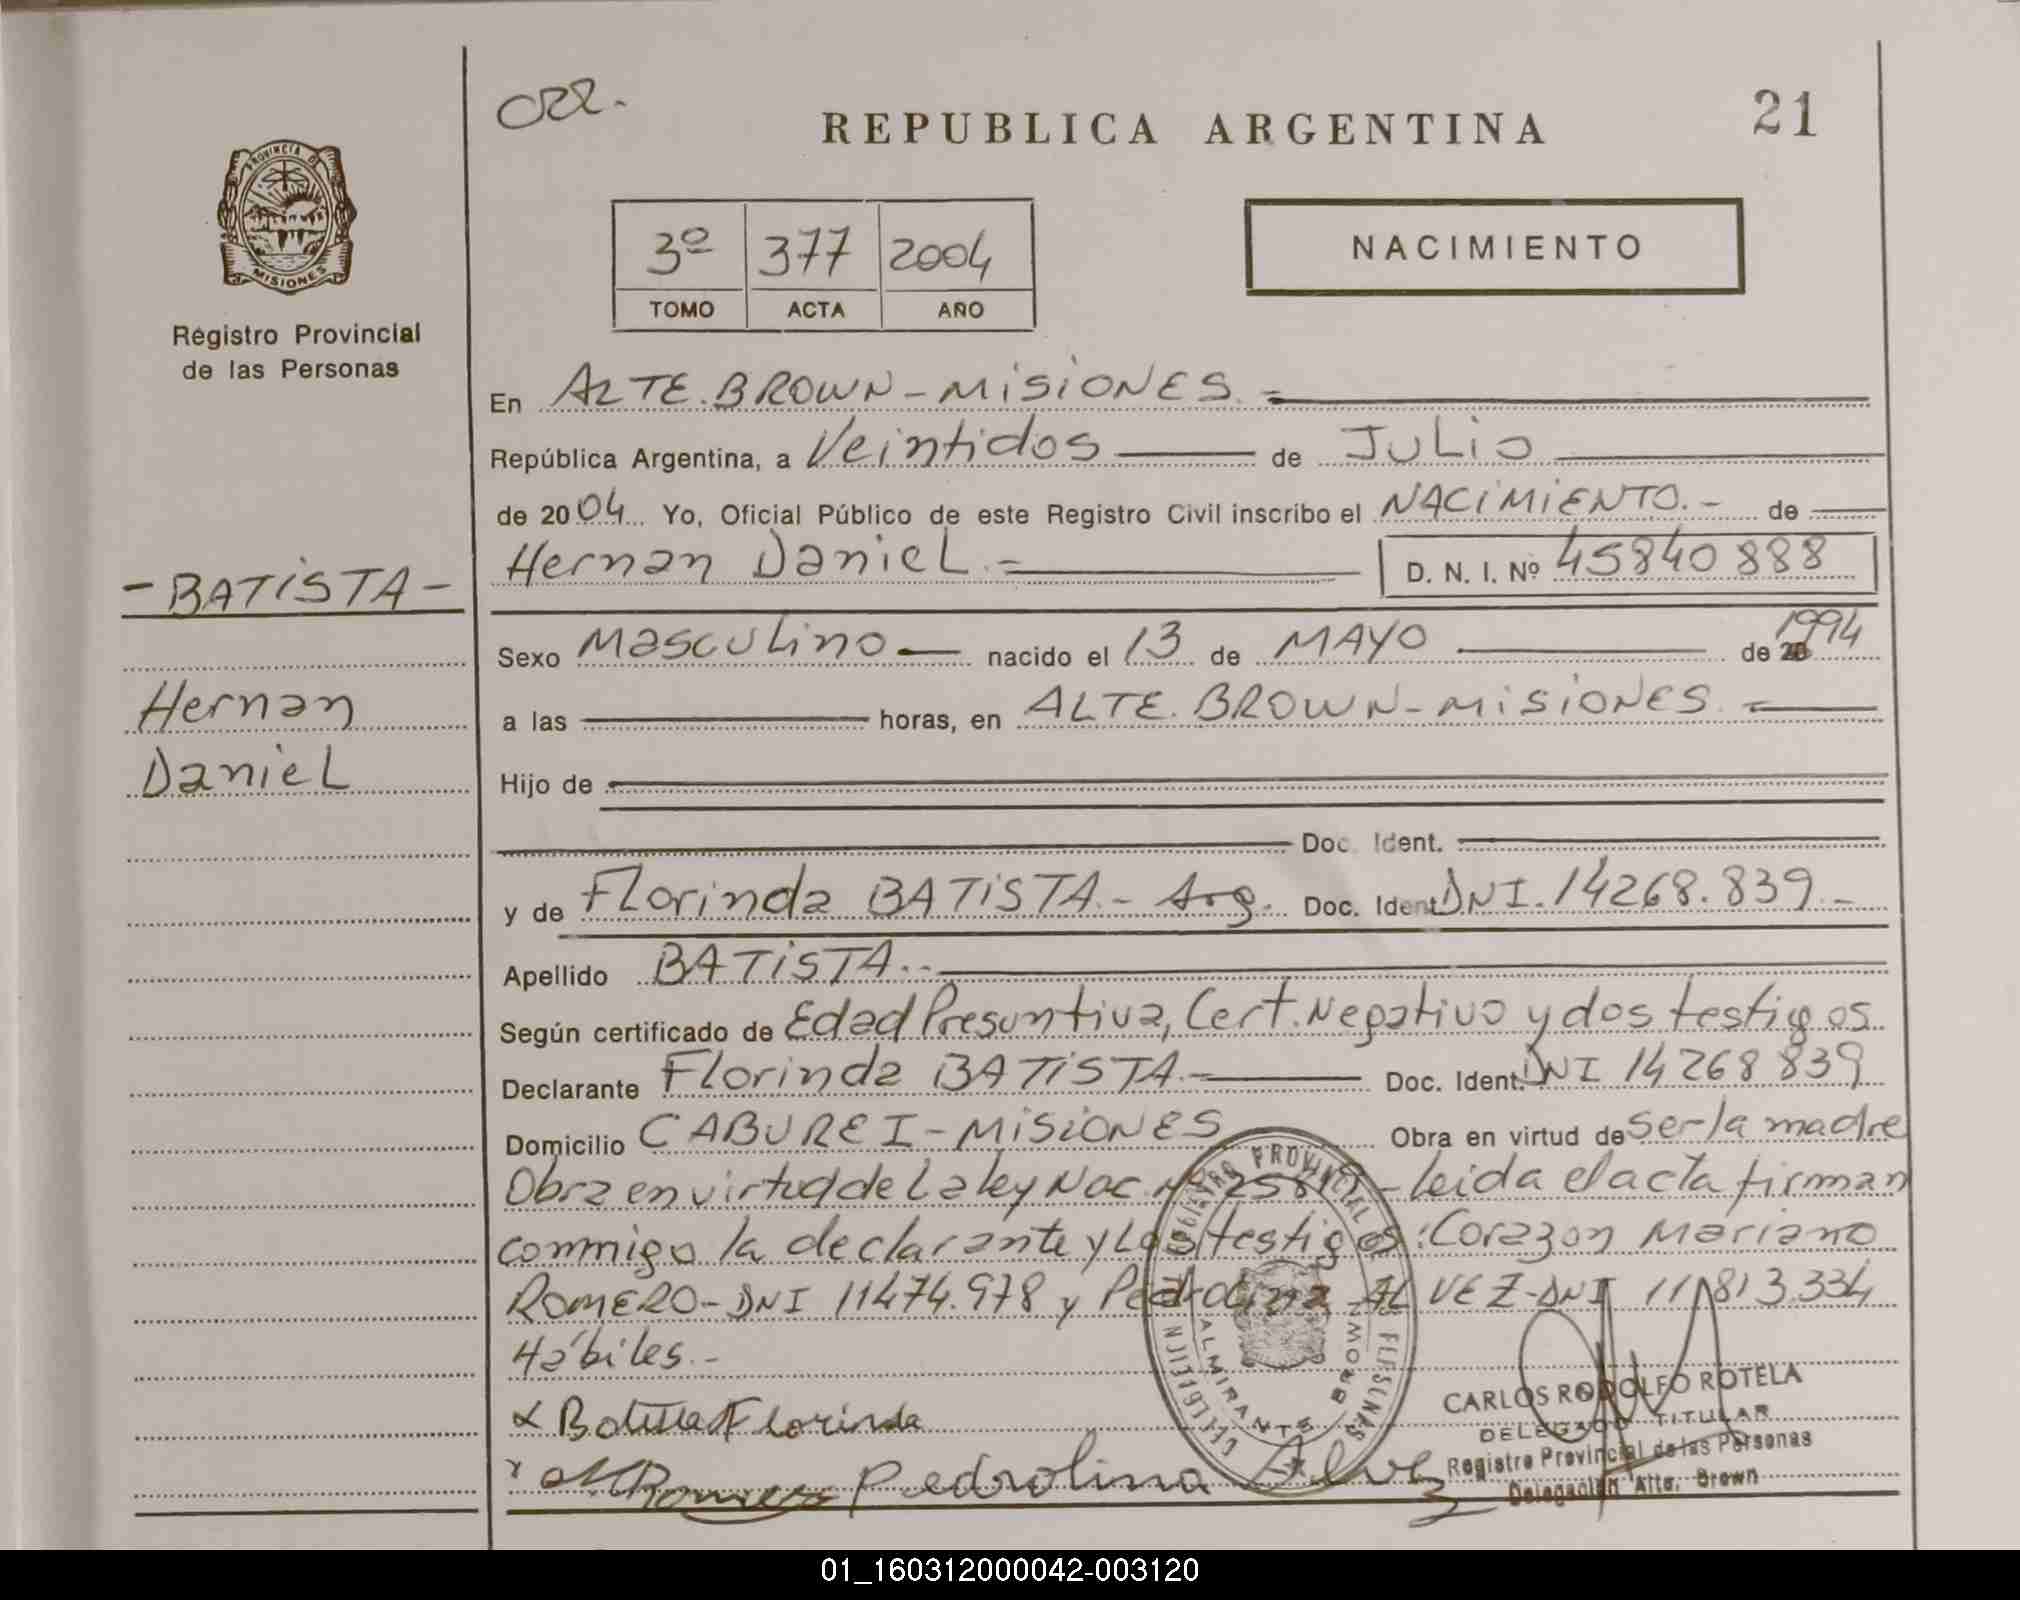 022.
REPUBLICA ARGENTINA
21
PROVINCIA D
MISIONES
Registro Provincial
de las Personas
3º 377 2004
TOMO ACTA AÑO
NACIMIENTO
En ALTE. BROWN - MISIONES. =
República Argentina, a Veintidos de JULIO
de 2004 Yo, Oficial Público de este Registro Civil inscribo el NACIMIENTO.- de
Hernan Daniel.= D. N. I. Nº 45840888
- BATISTA -
Hernan
Daniel
Sexo Masculino nacido el 13 de MAYO de 20 1994
a las horas, en ALTE. BROWN - MISIONES. =
Hijo de
Doc. Ident.
y de Florinda BATISTA.- Arg. Doc. Ident. DNI. 14268.839.-
Apellido BATISTA.-
Según certificado de Edad Presuntiva, Cert. Negativo y dos testigos
Declarante Florinda BATISTA.- Doc. Ident. DNI 14268839
Domicilio CABUREI - MISIONES Obra en virtud de ser la madre
Obra en virtud de la ley Nac. Nº - leida el acta firman
conmigo la declarante y Los testigos: Corazon Mariano
ROMERO - DNI 11474.978 y Pedrolina ALVEZ - DNI 11.813.334
Hábiles.-
x Batista Florinda
Romero Pedrolina Alvez
REGISTRO PROVINCIAL DE LAS PERSONAS
ALMIRANTE BROWN
CARLOS RODOLFO ROTELA
DELEGADO TITULAR
Registro Provincial de las Personas
Delegación Alte. Brown
01_160312000042-003120